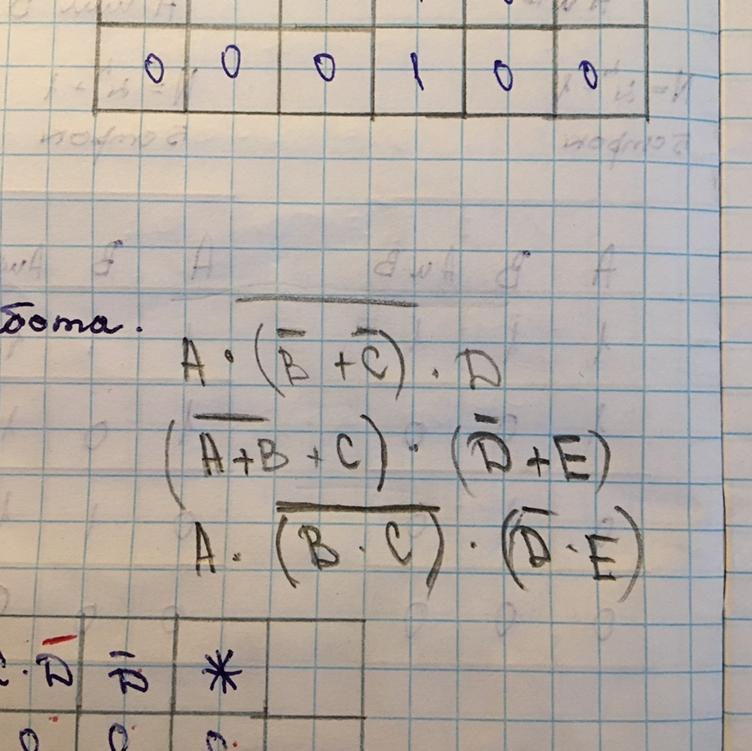 0 0 0 1 0 0
бота.
A · \overline{(\overline{B} + \overline{C})} · D
(\overline{A+B} + C) · (\overline{D} + E)
A · \overline{(B · C)} · (\overline{D} · E)
· \overline{D} \overline{D} *
0 0 0